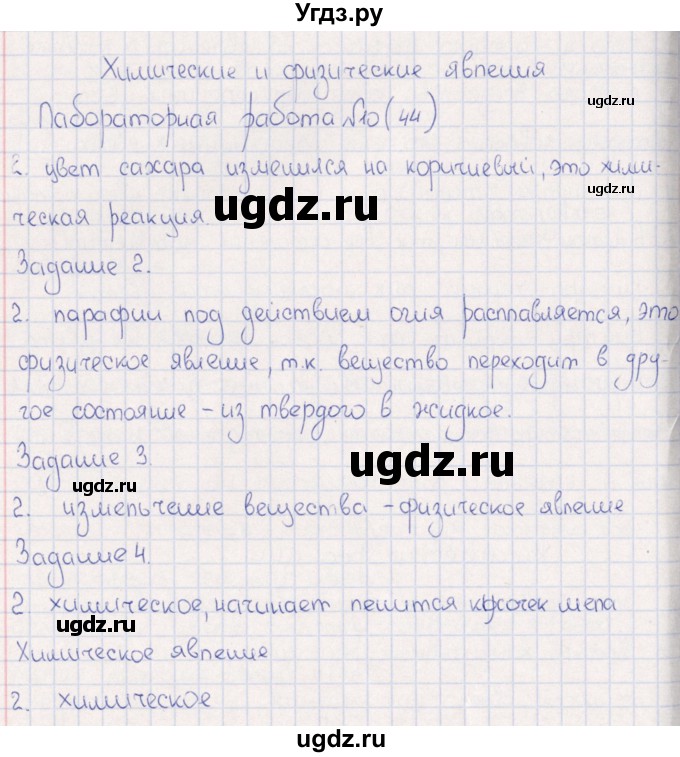 Угдз.ру
Химические и физические явления
ugdz.ru
Лабораторная работа №10 (44)
2. цвет сахара изменился на коричневый, это хими-
ugdz.ru
ческая реакция.
ugdz.ru
Задание 2.
2. парафин под действием огня расплавляется, это
физическое явление, т.к. вещество переходит в дру-
гое состояние - из твердого в жидкое.
Задание 3.
ugdz.ru
ugdz.ru
2. измельчение вещества - физическое явление
Задание 4.
2. химическое, начинает пенится кусочек мела
ugdz.ru
Химическое явление
2. химическое
ugdz.ru